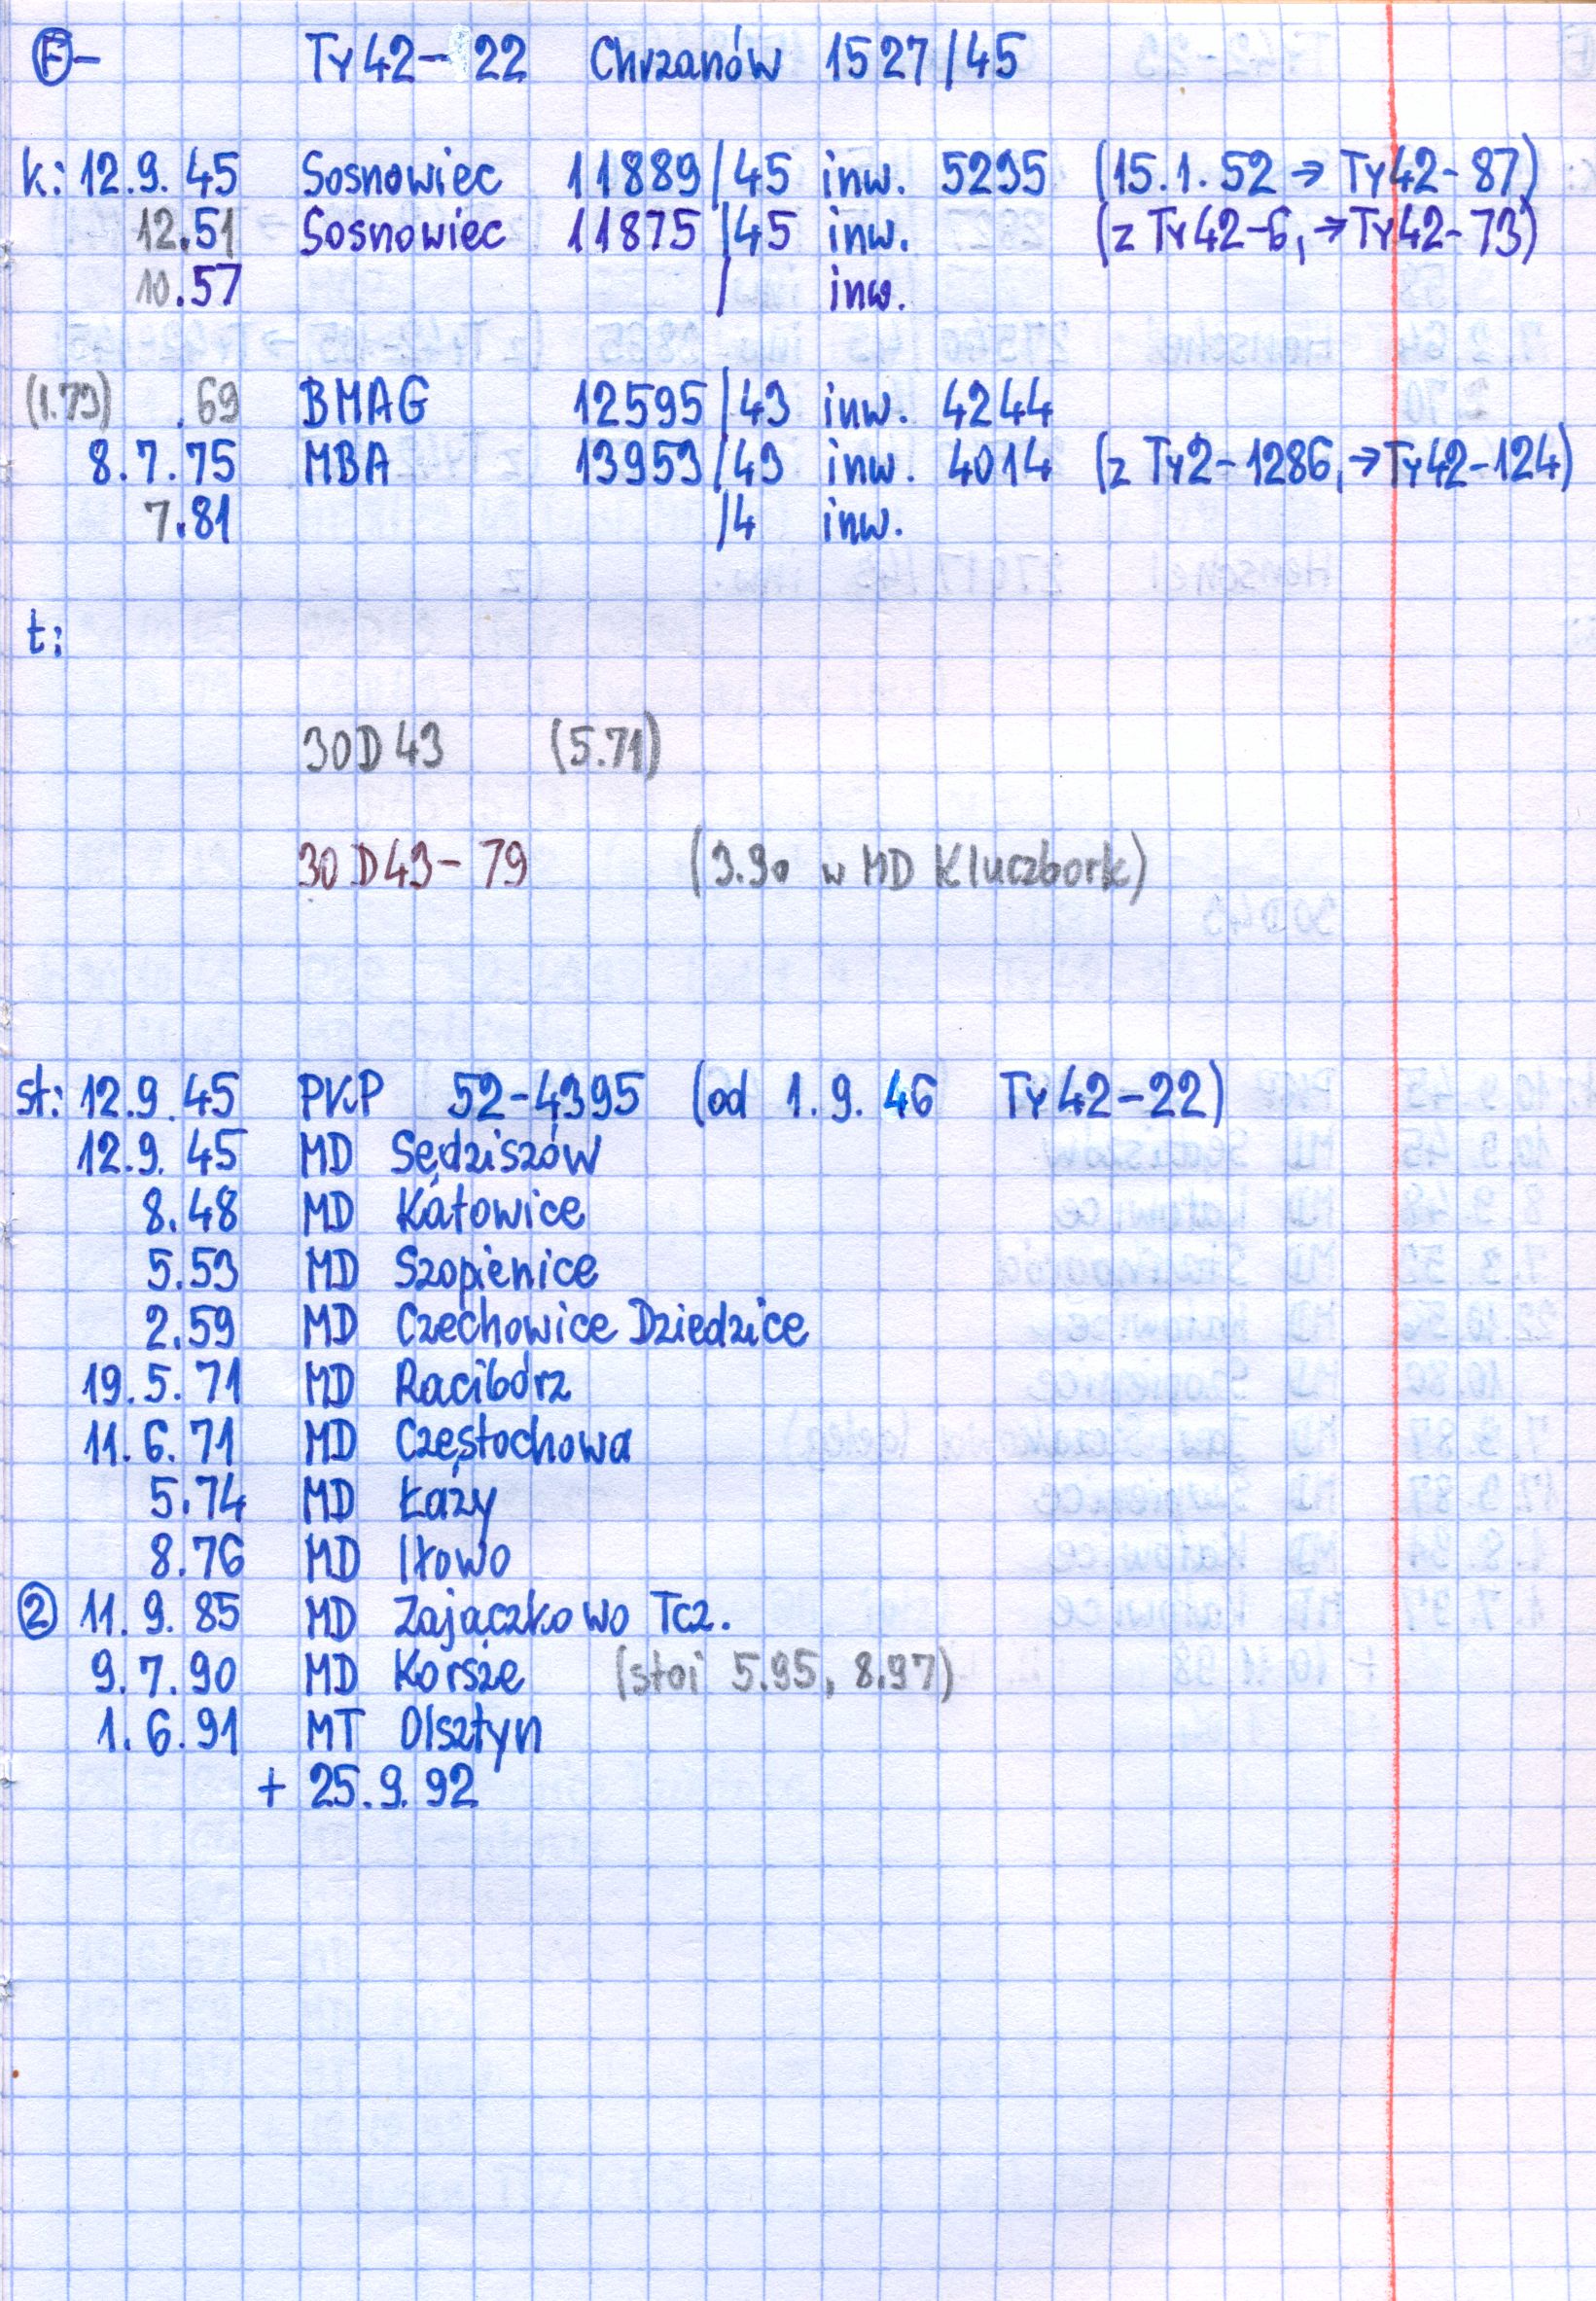 Ⓕ- Ty42-22 Chrzanów 1527/45
k: 12.9.45 Sosnowiec 11889/45 inw. 5295 (15.1.52 → Ty42-87)
12.51 Sosnowiec 11875/45 inw. (z Ty42-6, → Ty42-73)
10.57 / inw.
(1.73) .69 BMAG 12595/43 inw. 4244
8.7.75 MBA 13953/43 inw. 4014 (z Ty2-1286, → Ty42-124)
7.81 /4 inw.
t:
30D43 (5.71)
30D43-79 (3.90 w MD Kluczbork)
st: 12.9.45 PKP 52-4395 (od 1.9.46 Ty42-22)
12.9.45 MD Sędziszów
8.48 MD Katowice
5.53 MD Szopienice
2.59 MD Czechowice Dziedzice
19.5.71 MD Racibórz
11.6.71 MD Częstochowa
5.74 MD Łazy
8.76 MD Iłowo
② 11.9.85 MD Zajączkowo Tcz.
9.7.90 MD Korsze (stoi 5.95, 8.97)
1.6.91 MT Olsztyn
+ 25.9.92